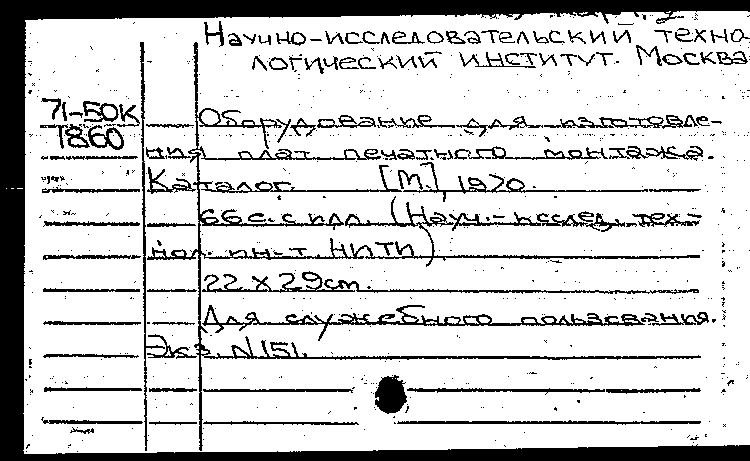 Научно-исследовательский техно
логический институт. Москва
71-50К
1860
Оборудование для изготовле-
ния плат печатного монтажа.
Каталог. [М.], 1970.
66 с. с илл. (Науч.-исслед. тех-
нол. ин-т. НИТИ)
22 x 29 cm.
Для служебного пользования.
Экз. N 151.